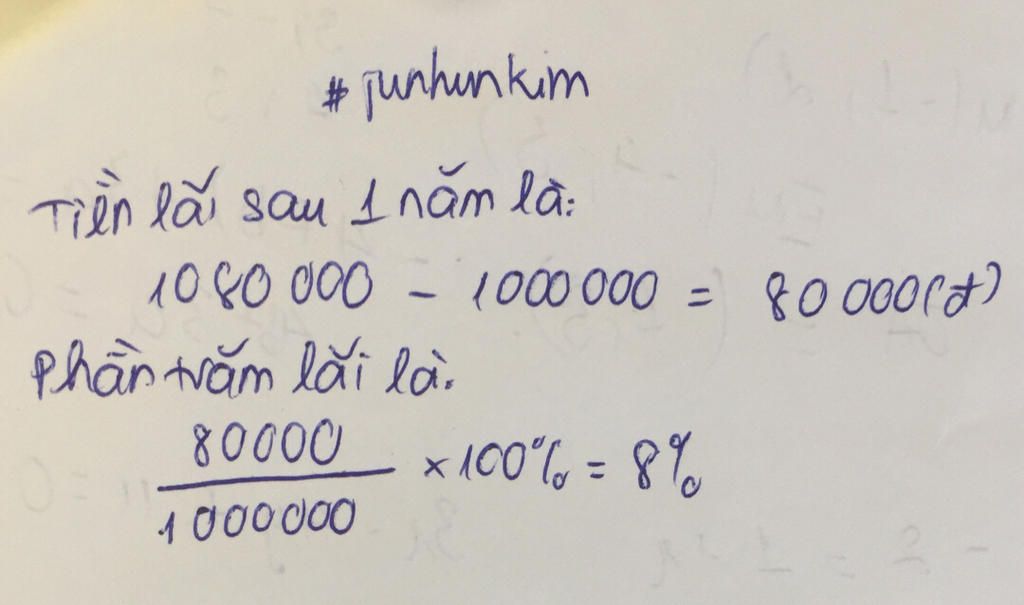 #junhunkim
Tiền lãi sau 1 năm là:
1080 000 - 1000 000 = 80 000(đ)
Phần trăm lãi là.
80000
1000000
× 100% = 8%